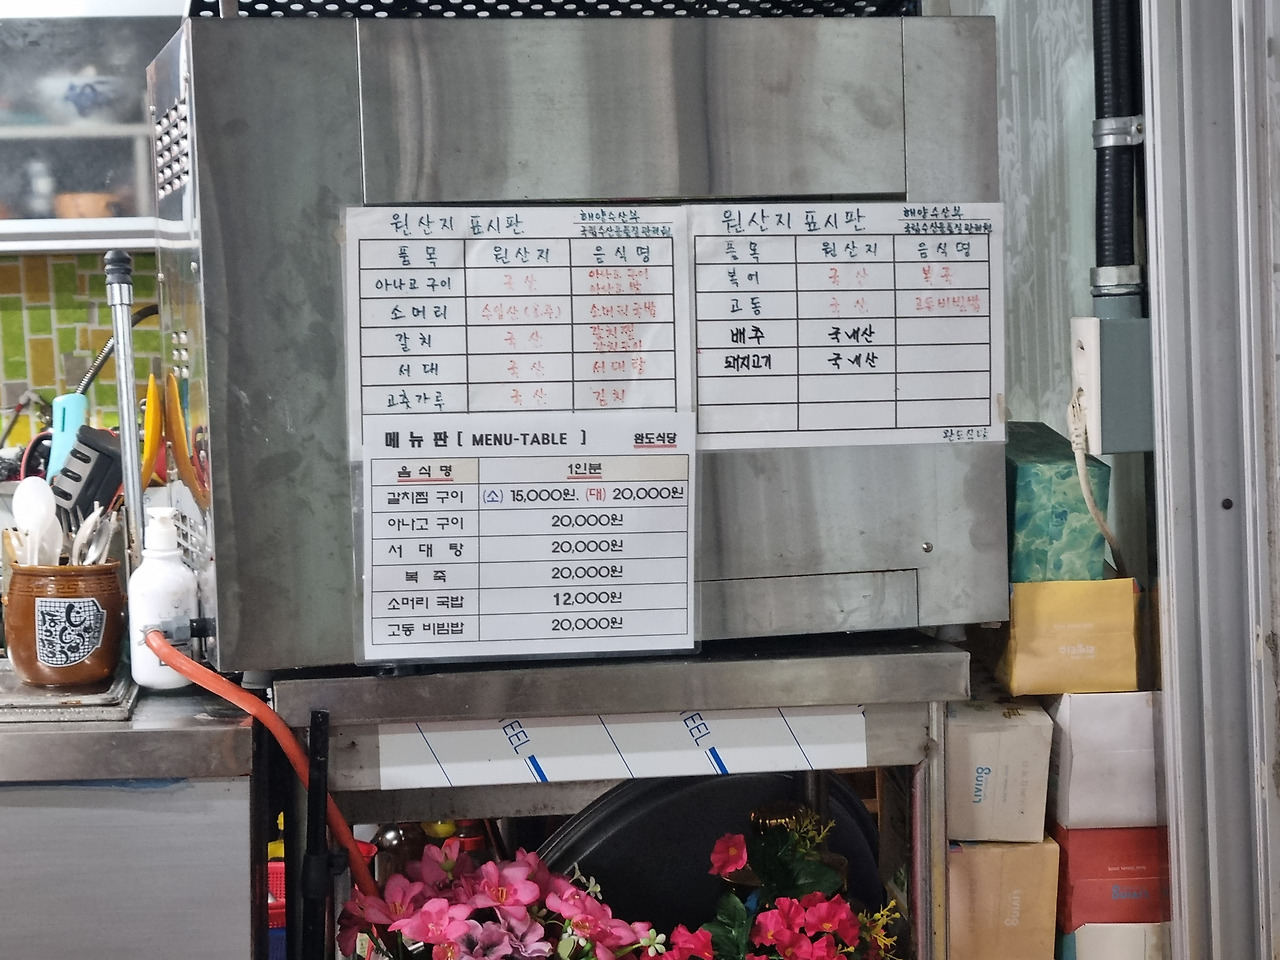 원산지 표시판
해양수산부
국립수산물품질관리원
품목 원산지 음식명
아나고 구이 국산 아나고 구이
아나고 탕
소머리 수입산(호주) 소머리국밥
갈치 국산 갈치찜
갈치구이
서대 국산 서대탕
고춧가루 국산 김치
원산지 표시판
해양수산부
국립수산물품질관리원
품목 원산지 음식명
복어 국산 복죽
고동 국산 고동비빔밥
배추 국내산
돼지고기 국내산
완도식당
메뉴판 [ MENU-TABLE ] 완도식당
음식명 1인분
갈치찜 구이 (소) 15,000원. (대) 20,000원
아나고 구이 20,000원
서 대 탕 20,000원
복 죽 20,000원
소머리 국밥 12,000원
고동 비빔밥 20,000원
EEL
EEL
LIVING
Living